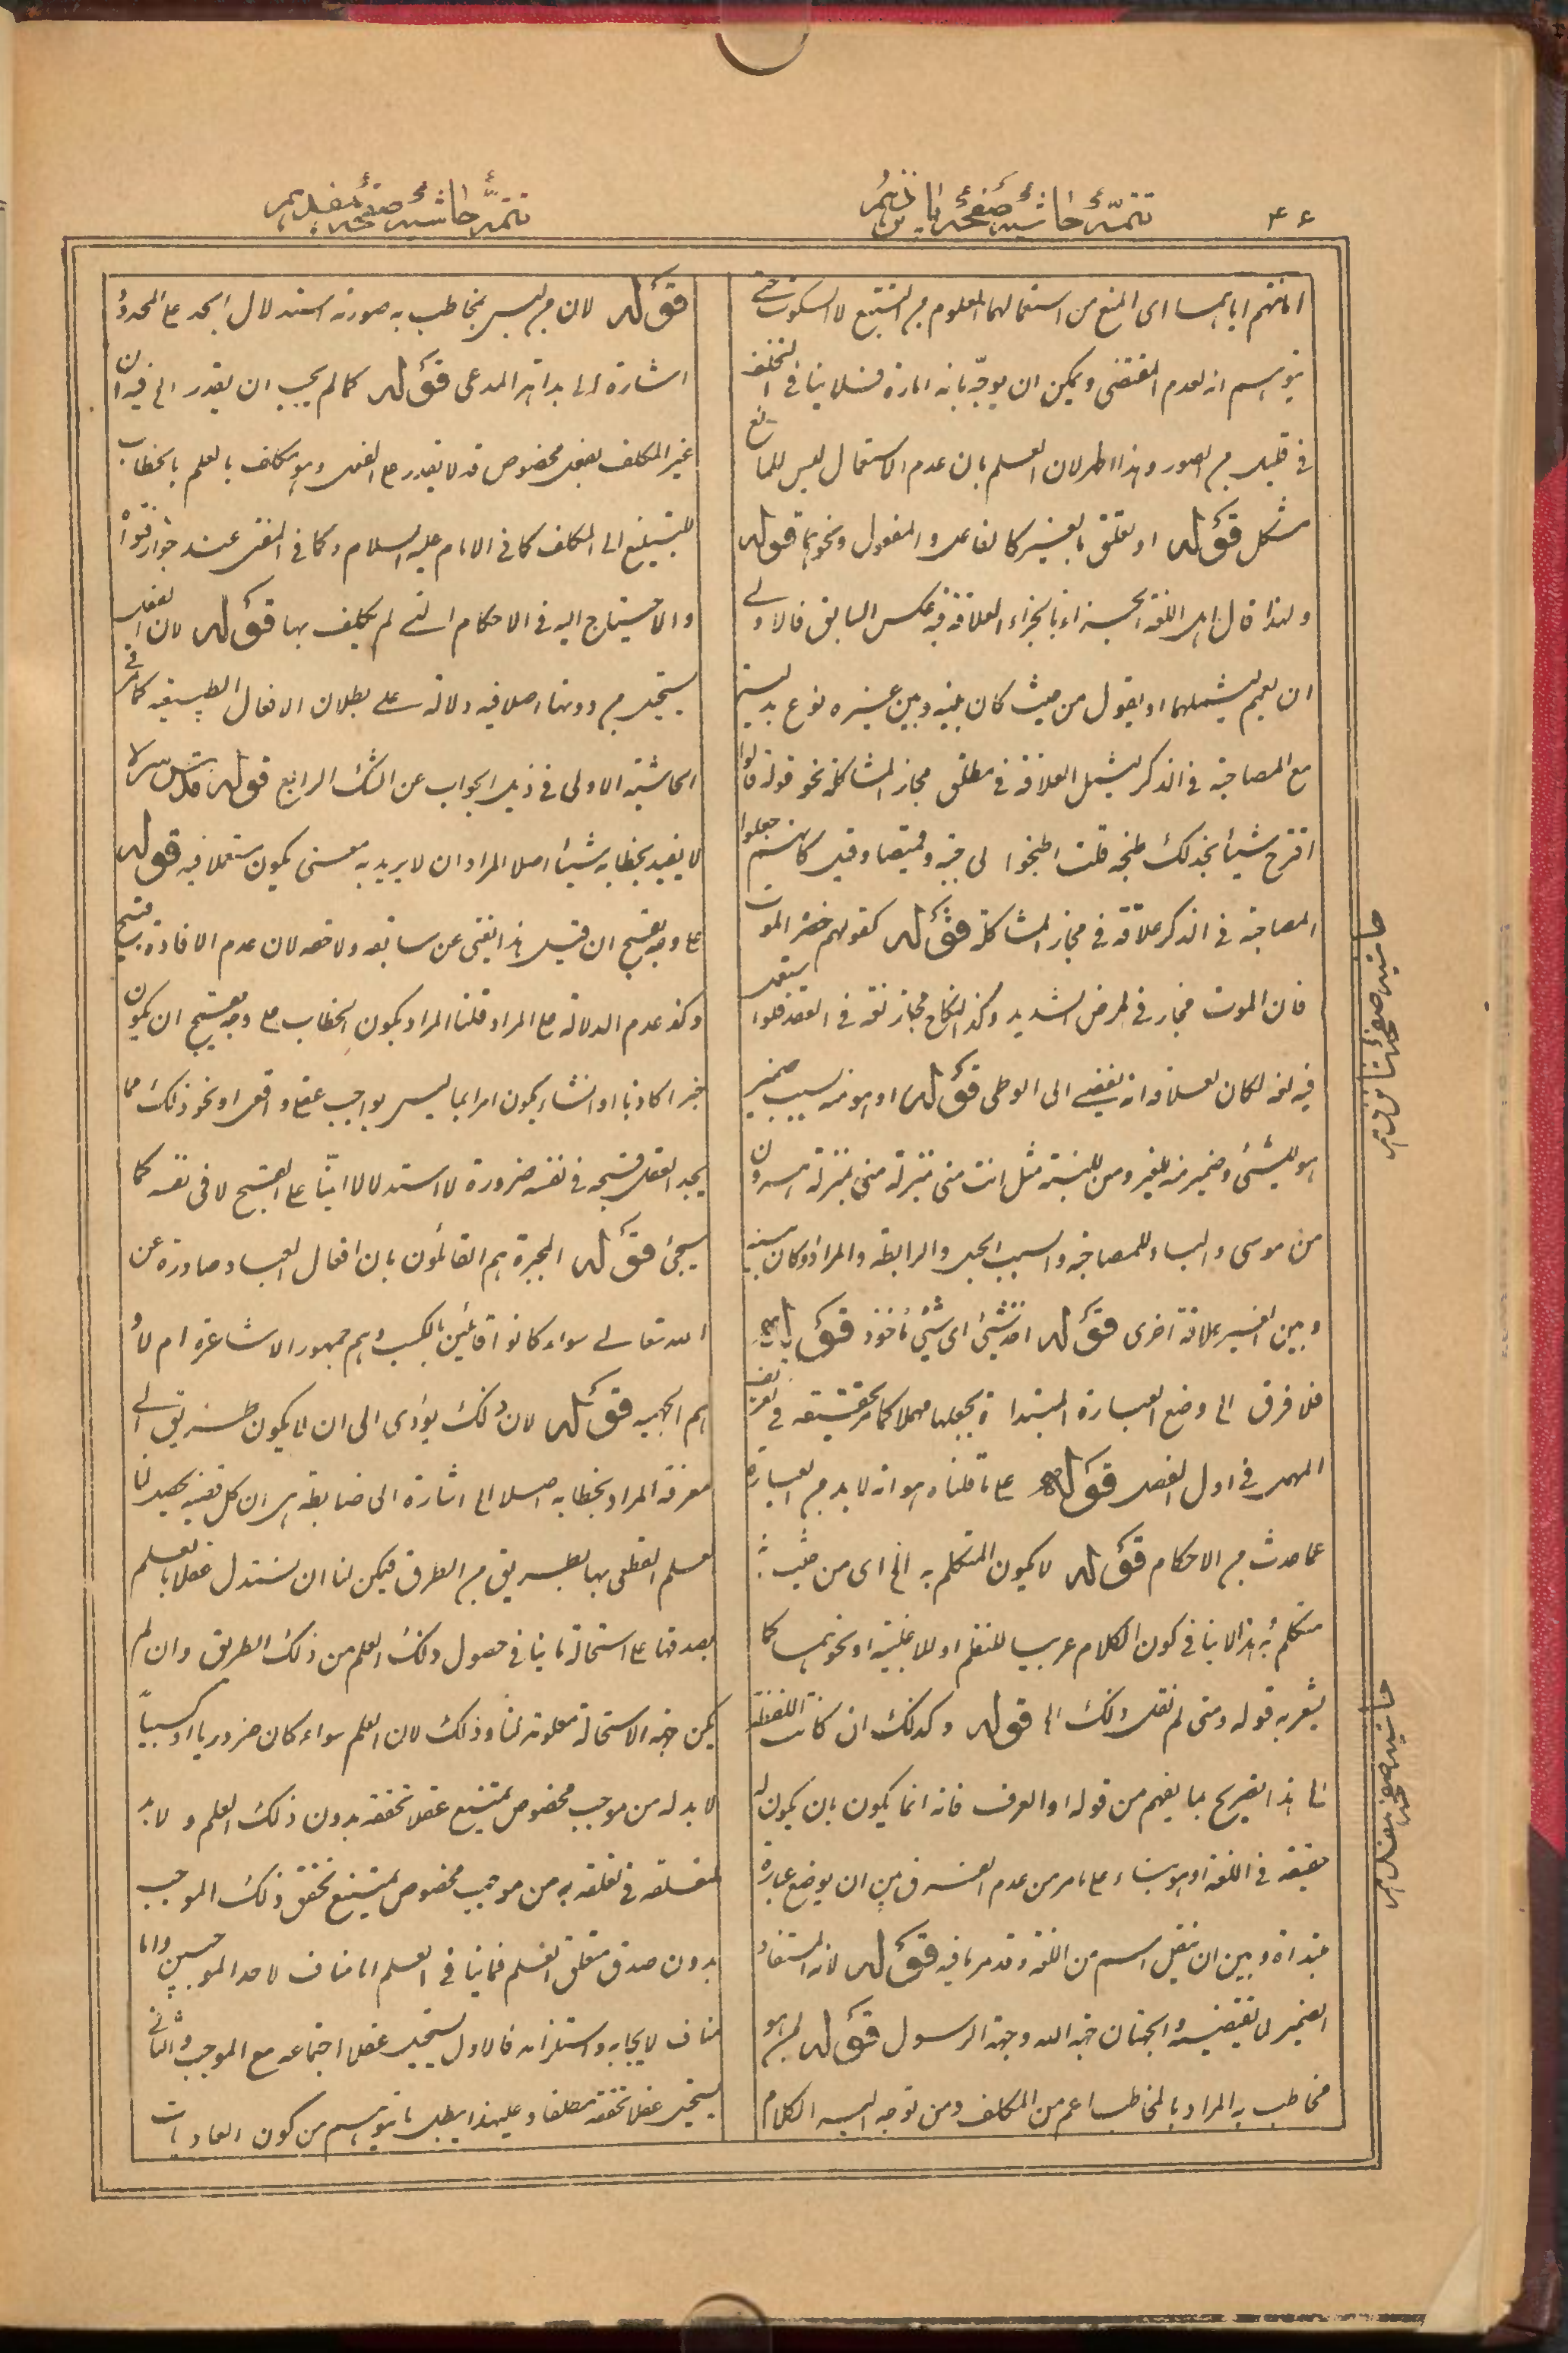 ۴۶
تتمّهٔ حاشیه صفحهٔ
تتمّهٔ حاشیه صفحهٔ
امانتهم اياهما اى المنع من استعمالهما المعلوم من التتبع لا السكوت حتى
يتوهم انه لعدم المقتضى ويمكن ان يوجّه بانه امارة فلا ينافى التخلف
فى قليل من الصور وهذا اظهر لان العلم بان عدم الاستعمال ليس للمانع
مشكل قوله او تعلق بالغير كالفاعل والمفعول ونحوهما قوله
ولهذا قال اهل اللغة العلاقة فيه عكس السابق فالاولى
ان يعمم ليشملهما او يقول من حيث كان بينه وبين غيره نوع
مع المصاحبة فى الذكر ليشمل العلاقة فى مطلق مجاز المشاكلة نحو قوله قالوا
اقترح شيئا نجد لك طبخه قلت اطبخوا لى جبة وقميصا وقيل كانهم جعلوا
المصاحبة فى الذكر علاقة فى مجاز المشاكلة قوله كقولهم حضره الموت
فان الموت مجاز فى المرض الشديد وكذا النكاح مجاز لغة فى العقد فلو استعمل
فيه لغة لكان لعلاقة انه يفضى الى الوطى قوله او هو منه بسبب ضمير
هو للشئ وضمير منه للغير ومن للنسبة مثل انت منى بمنزلة هرون
من موسى والباء للمصاحبة والسبب الحبل والرابطة والمراد وكان بينه
وبين الغير علاقة اخرى قوله اخذ شئ اى شئ مأخوذ قوله
فلا فرق الى وضع العبارة المبتدأة بجعلها مهملا كما مر تحقيقه فى تعريف
المهمل فى اول الفصل قوله على ما قلناه هو انه لا بد من العبارة
عما حدث من الاحكام قوله لا يكون المتكلم به الخ اى من حيث
متكلم به هذا لا ينافى كون الكلام عربيا للنظم او للاغلبية او نحوهما كما
يشعر به قوله ومتى لم نقل ذلك الخ قوله وكذلك ان كانت اللفظة
الخ هذا تصريح بما يفهم من قوله او العرف فانه انما يكون بان يكون له
حقيقة فى اللغة او هو بناء على ما مر من عدم الفرق بين ان يوضع عبارة
مبتدأة وبين ان ينقل اسم من اللغة وقد مر ما فيه قوله لانه المستفاد
الضمير لما يقتضيه والجهتان جهة الله وجهة الرسول قوله
مخاطب به المراد بالمخاطب اعم من المكلف ومن توجه اليه الكلام
قوله لان من ليس بمخاطب به صورته استدلال
اشارة الى بداهة المدعى قوله كما لم يجب ان يقدر الخ فيه ان
غير المكلف بفعل مخصوص قد لا يقدر على الفعل وهو مكلف بالعلم بالخطاب
للتبليغ الى المكلف كما فى الامام عليه السلام وكما فى المفتى عند جواز فتواه
والاحتياج اليه فى الاحكام التى لم يكلف بها قوله لان الفعل
يستحيل من دونها اصلا فيه دلالة على بطلان الافعال الطبيعية كما مر فى
الحاشية الاولى فى ذيل الجواب عن الشك الرابع قوله قدس سره
لا يفيد بخطابه شيئا اصلا المراد ان لا يريد به معنى يكون مستعملا فيه قوله
على وجه يقبح ان قيل هذا يغنى عن سابقه ولاحقه لان عدم الافادة قبيح
وكذا عدم الدلالة على المراد قلنا المراد بكون الخطاب على وجه يقبح ان يكون
خبرا كاذبا او انشاء يكون امرا بما ليس بواجب عقلا واقعا او نحو ذلك مما
يجد العقل قبحه فى نفسه ضرورة لا استدلالا انّيا على القبيح لا فى نفسه كما
سيجئ قوله المجبرة هم القائلون بان افعال العباد صادرة عن
الله تعالى سواء كانوا قائلين بالكسب وهم جمهور الاشاعرة ام لا و
هم الجهمية قوله لان ذلك يؤدى الى ان لا يكون طريق الى
معرفة المراد بخطابه اصلا الخ اشارة الى ضابطة هى ان كل قضية يحصل لنا
العلم القطعى بها بطريق من الطرق فيمكن لنا ان نستدل عقلا بالعلم
بصدقها على استحالة ما ينافى حصول ذلك العلم من ذلك الطريق وان لم
يكن جهة الاستحالة معلومة لنا وذلك لان العلم سواء كان ضروريا او كسبيا
لا بد له من موجب مخصوص يمتنع عقلا تحققه بدون ذلك العلم ولا بد
لمتعلقه فى تعلقه به من موجب مخصوص يمتنع تحقق ذلك الموجب
بدون صدق متعلق العلم فما ينافى العلم اما مناف لاحد الموجبين واما
مناف لايجابه واستلزامه فالاول يستحيل عقلا اجتماعه مع الموجب والثانى
يستحيل عقلا تحققه مطلقا وعليهذا يبطل ما يتوهم من كون العاديات